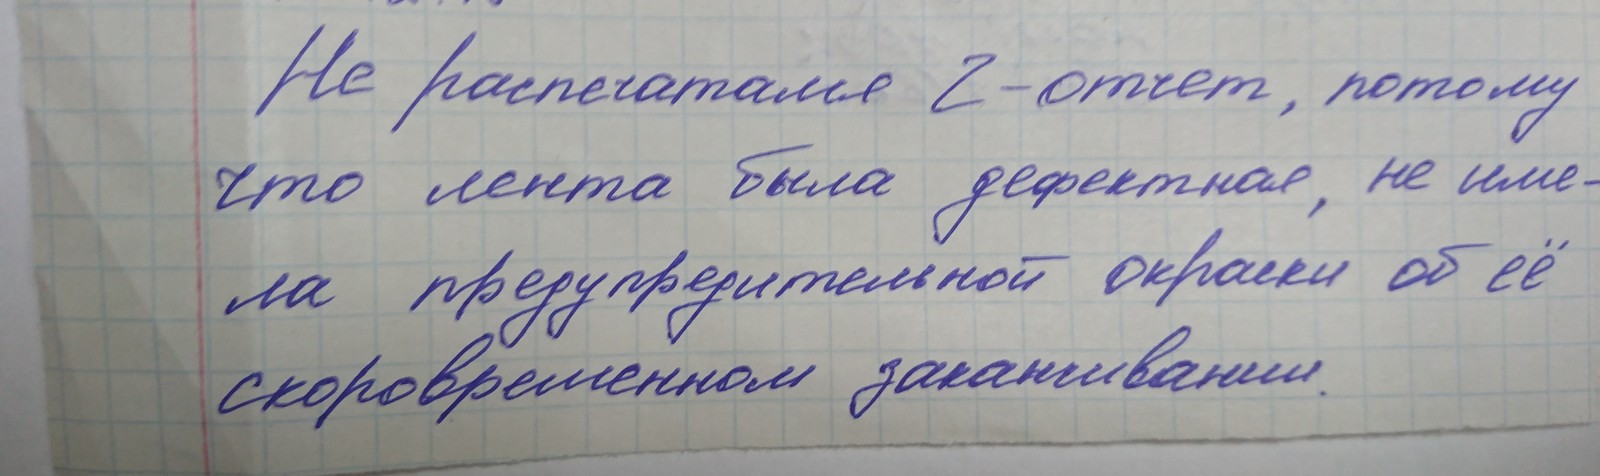 Не распечатался Z-отчет, потому
что лента была дефектная, не име-
ла предупредительной окраски об её
скоровременном заканчивании.